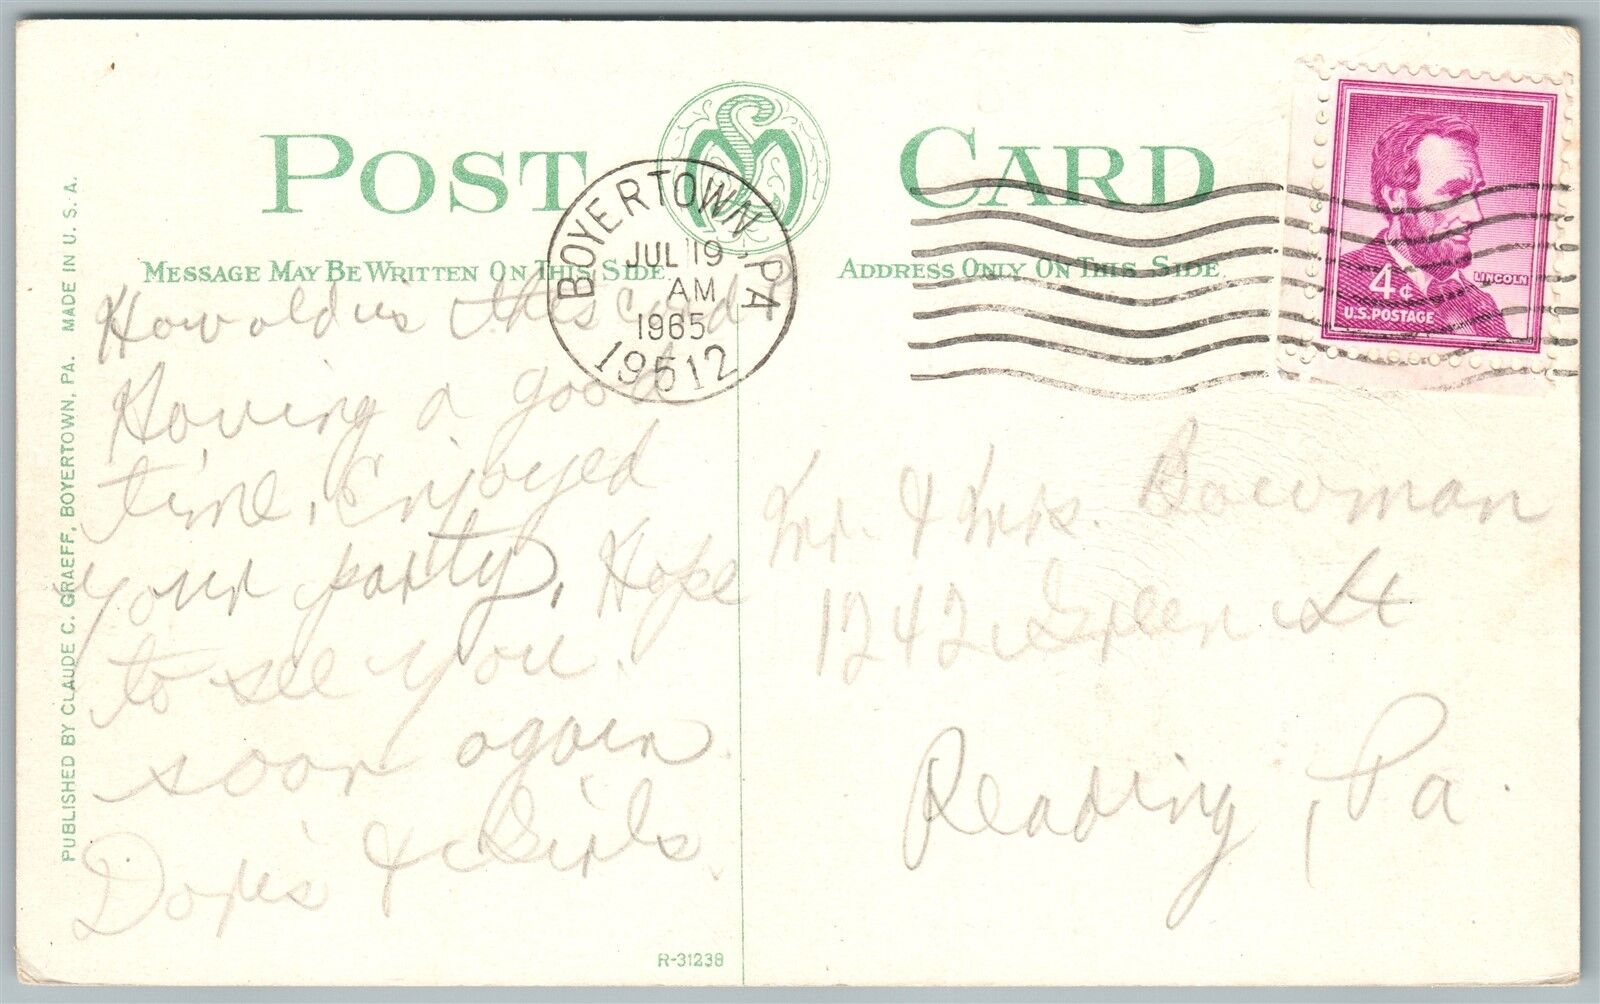 POST CARD
MESSAGE MAY BE WRITTEN ON THIS SIDE
ADDRESS ONLY ON THIS SIDE
BOYERTOWN PA
JUL 19
AM
1965
19512
LINCOLN
4¢
U.S. POSTAGE
How old is this card?
Having a good
time. Enjoyed
your party, Hope
to see you.
soon again.
Doris & Girls.
Mr. & Mrs. Bowman
1242 Green St
Reading, Pa.
PUBLISHED BY CLAUDE C. GRAEFF, BOYERTOWN, PA. MADE IN U. S. A.
R-31238